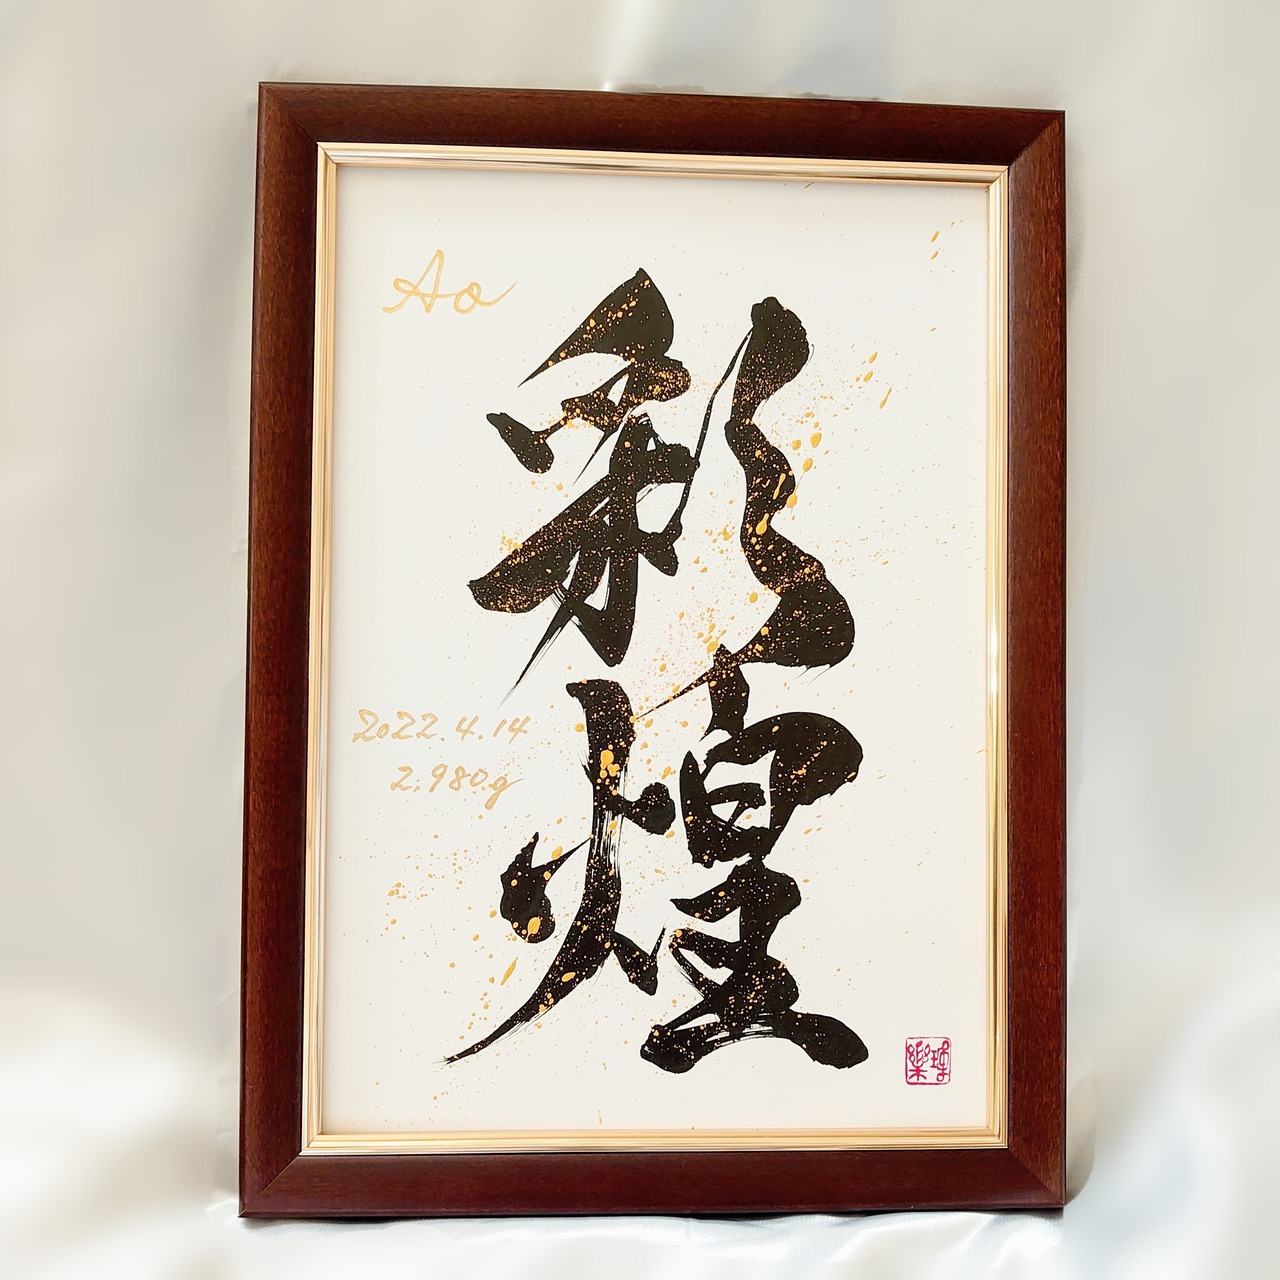 Ao
彩
煌
2022.4.14
2,980g